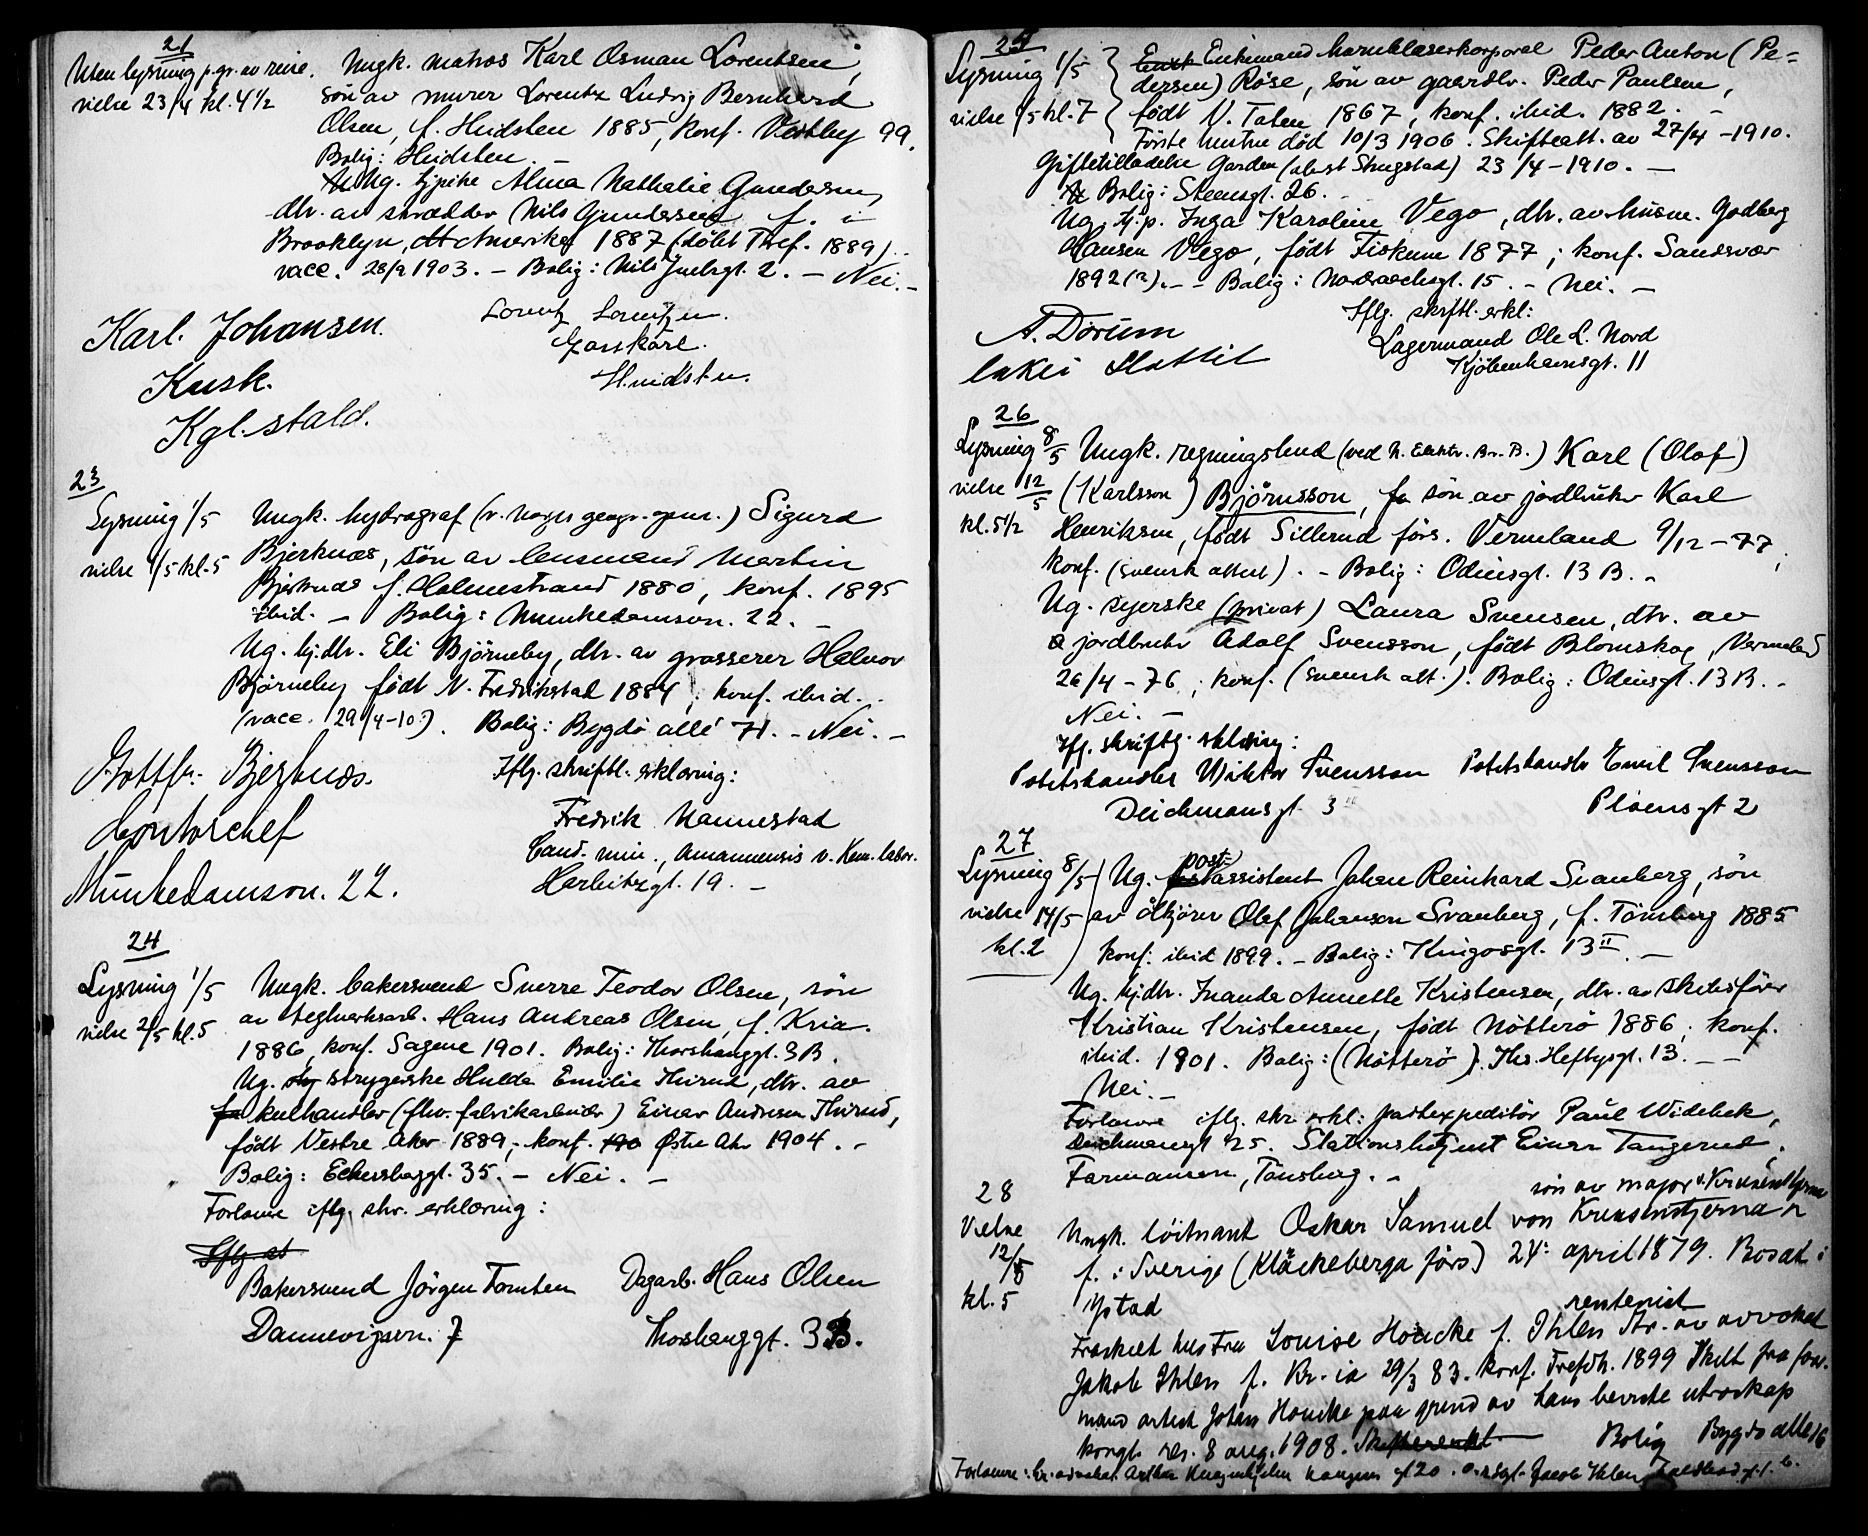 21
Uten lysning p. gr. av reise.
vielse 23/4 kl. 4 1/2
Ungk. matros Karl Osman Lorentsen,
søn av murer Lorentz Ludvig Bernhard
Olsen, f. Hvidsten 1885, konf. Vestby 99.
Bolig: Hvidsten. —
Ug. tjpike Alma Nathalie Gundersen
dtr. av skrædder Nils Gundersen f. i
Brooklyn, Amerika 1887 (døbt Tref. 1889)
vacc. 28/9 1903. — Bolig: Nils Juelsgt. 2. — Nei. —
Karl. Johansen.
Kusk.
Kgl. stald.
Hvidsten.
23
Lysning 1/5
vielse 1/5 kl. 5
Ungk. hydrograf (v. Norges geogr. opm.) Sigurd
Bjerknæs, søn av lensmand Martin
Bjerknæs f. Holmestrand 1880, konf. 1895
ibid. — Bolig: Munkedamsvn. 22. —
Ug. hj. dtr. Eli Bjørneby, dtr. av grosserer Halvor
Bjørneby født N. Fredrikstad 1884; konf. ibid.
(vacc. 29/4-10). Bolig: Bygdø allé 71. — Nei. —
Gottfr. Bjerknæs.
Kontorchef
Munkedamsvn. 22.
Iflg. skriftl. erklæring:
Fredrik Nannestad
Cand. min., Amanuensis v. Kem. labor.
Harbitzgt. 19. —
24
Lysning 1/5
vielse 2/5 kl. 5
Ungk. bakersvend Sverre Teodor Olsen, søn
av teglverksarb. Hans Andreas Olsen, f. Kria.
1886, konf. Sagene 1901. Bolig: Thorshauggt. 3 B.
Ug. strygerske Hulda Emilie Thirud, dtr. av
kulhandler (fhv. fabrikarbeider) Einar Andersen Thirud,
født Vestre Aker 1889; konf. Østre Akr 1904. —
Bolig: Eckersbaggt. 35. — Nei. —
Forlovere iflg. skr. erklæring:
Bakersvend Jørgen Tomten
Dannevigsvn. 7
Dagarb. Hans Olsen
Thorshauggt. 3 B.
25
Lysning 1/5
vielse /5 kl. 7
Enkemand hornblæserkorporal Peder Anton (Pe-
dersen) Røse, søn av gaardbr. Peder Paulsen,
født N. Toten 1867, konf. ibid. 1882. —
Første hustru død 10/3 1906. Skifteatt. av 27/4 - 1910.
Giftetilladelse Garden (oberst Strugstad) 23/4 - 1910. —
Bolig: Steensgt. 26.
Ug. tj.p. Inga Karoline Vego, dtr. av husm. Godberg
Hansen Vego, født Fiskum 1877; konf. Sandsvær
1892 (?). — Bolig: Nordraachsgt. 15. — Nei. —
A. Dørum
lakei Slottet
Iflg. skrftl. erkl:
Lagermand Ole L. Nord
Kjøbenhavnsgt. 11
26
Lysning 8/5
vielse 12/5
kl. 5 1/2
Ungk. regningsbud (ved N. Elektr. Br. B.) Karl (Olof)
(Karlsson) Bjørnsson, søn av jordbruker Karl
Henriksen, født Sillerud førs. Vermland 9/12 - 77;
konf. (svensk attest). — Bolig: Odinsgt. 13 B. —
Ug. syerske (privat) Laura Svensen, dtr. av
jordbruker Adolf Svensson, født Blomskog, Vermland
26/4 - 76; konf. (svensk att.). Bolig: Odinsgt. 13 B. —
Nei. —
Iflg. skriftlg. erklæring:
Potetshandler Wiktor Svensson
Deichmansgt. 3
Potetshandlr Emil Svensson
Pløensgt 2
27
Lysning 8/5
vielse 14/5
kl. 2
Ug. postassistent Johan Reinhard Svanberg, søn
av ølkjører Olof Johansen Svanberg, f. Tønsberg 1885
konf. ibid 1899. — Bolig: Kingosgt. 13 II. —
Ug. hj.dtr. Inanda Annette Kristensen, dtr. av skibsfører
Kristian Kristensen, født Nøtterø 1886; konf.
ibid. 1901. Bolig: (Nøtterø). Ths. Heftyesgt. 13. —
Nei. —
Forlovere iflg. skr. erkl: postexpeditør Paul Widebek,
Deichmansgt 25. Stationsbetjent Einar Tangerud,
Farmannsvn, Tønsberg. —
28
Vielse
12/5
kl. 5
søn av major v. Krusenstjerna
Ungk. løitnant Oskar Samuel von Krusenstjerna
f. i Sverige (Klåckeberga førs) 24: april 1879. Bosat i
Ystad
rentenist
Fraskilt hustru Louise Houcke f. Ihlen dtr. av advokat
Jakob Ihlen f. Kr.ia 29/3 83. konf. Trefdh. 1899 Skilt fra forr.
mand artist Johan Houcke paa grund av hans beviste utroskap
kongl. res. 8 aug. 1908.
Bolig Bygdø allé 16